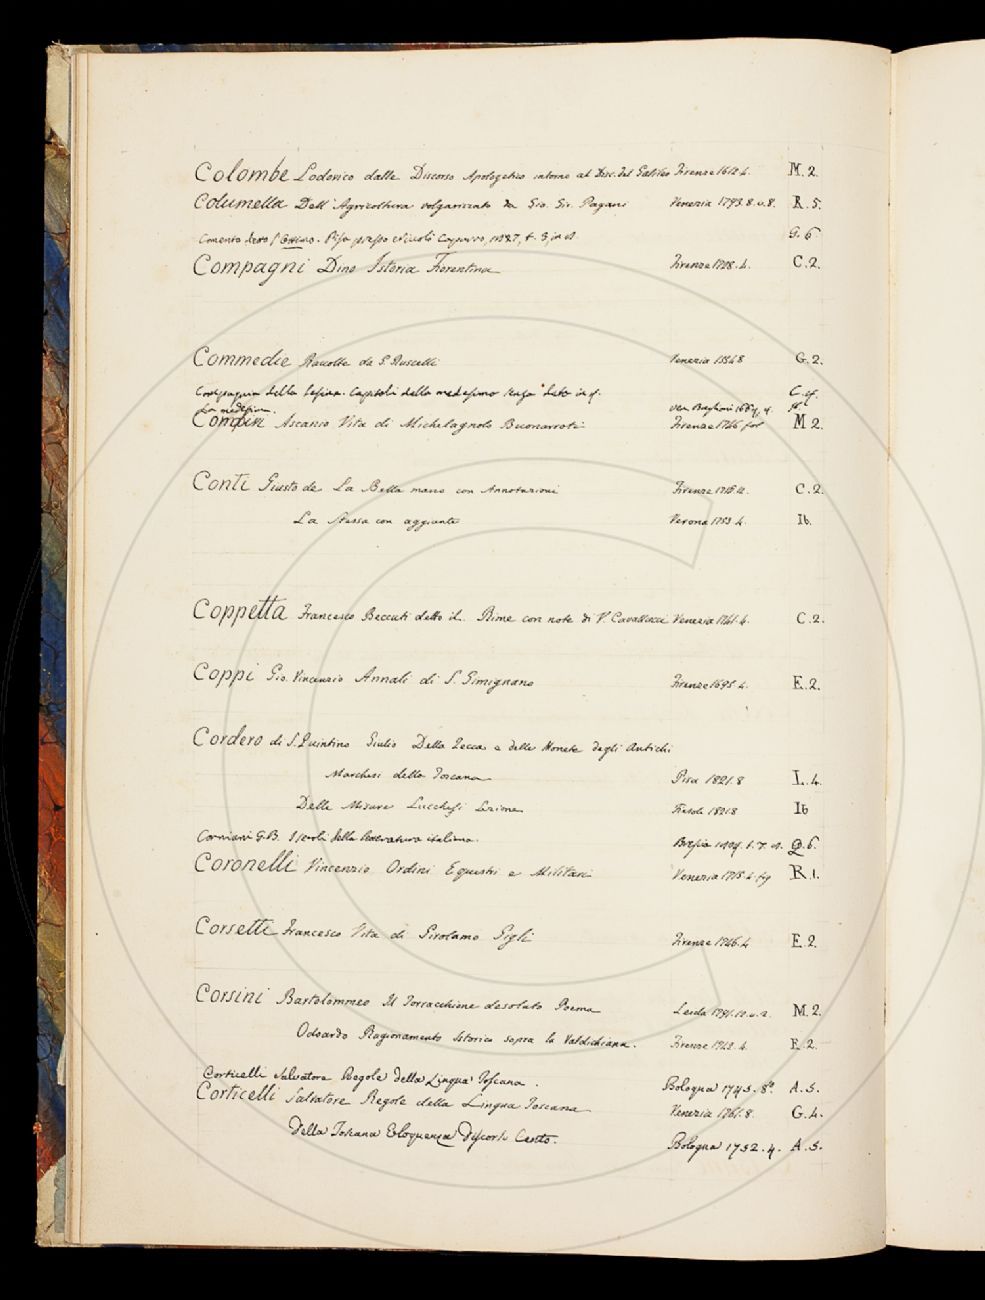 Colombe Lodovico dalle Discorso Apologetico intorno al Disc. del Galileo Firenze 1612.4. M.2.
Columella Dell'Agricoltura volgarizzato da Gio. Gir. Pagani Venezia 1793.8.v.8. R.5.
Comento sopra Pisa presso Niccolò Capurro, in 8. G.6
Compagni Dino Istoria Fiorentina Firenze 1728.4. C.2.
Commedie Raccolte da G. Ruscelli Venezia 1554.8 G.2.
Compagnia della Lesina. Capitoli della medesima
la medesima. Ven. Baglioni
Condivi Ascanio Vita di Michelagnolo Buonarroti Firenze 1746 fol M 2.
Conti Giusto de La Bella mano con Annotazioni Firenze 1715.12. C.2.
La Stessa con aggiunte Verona 1753.4. Ib.
Coppetta Francesco Beccuti detto il. Rime con note di V. Cavallucci Venezia 1751.4. C.2.
Coppi Gio. Vincenzio Annali di S. Gimignano Firenze 1695.4. E.2.
Cordero di S. Quintino Giulio Della Zecca e delle Monete degli Antichi
Marchesi della Toscana Pisa 1821.8 L.4.
Delle Misure Lucchesi Lezione 1821.8 Ib
Corniani G.B. I secoli della letteratura italiana. Brescia Q.6.
Coronelli Vincenzio Ordini Equestri e Militari Venezia 1715.4.fig R.1.
Corsetti Francesco Vita di Girolamo Gigli Firenze 1746.4 E.2.
Corsini Bartolommeo Il Torracchione desolato Poema Leida 1791.12.v.2. M.2.
Odoardo Ragionamento Istorico sopra la Valdichiana. Firenze 1742.4. E.2.
Corticelli Salvatore Regole della Lingua Toscana. Bologna 1745.8º. A.5.
Corticelli Salvatore Regole della Lingua Toscana Venezia 1761.8. G.4.
Della Toscana Eloquenza Discorsi Cento. Bologna 1752.4. A.5.